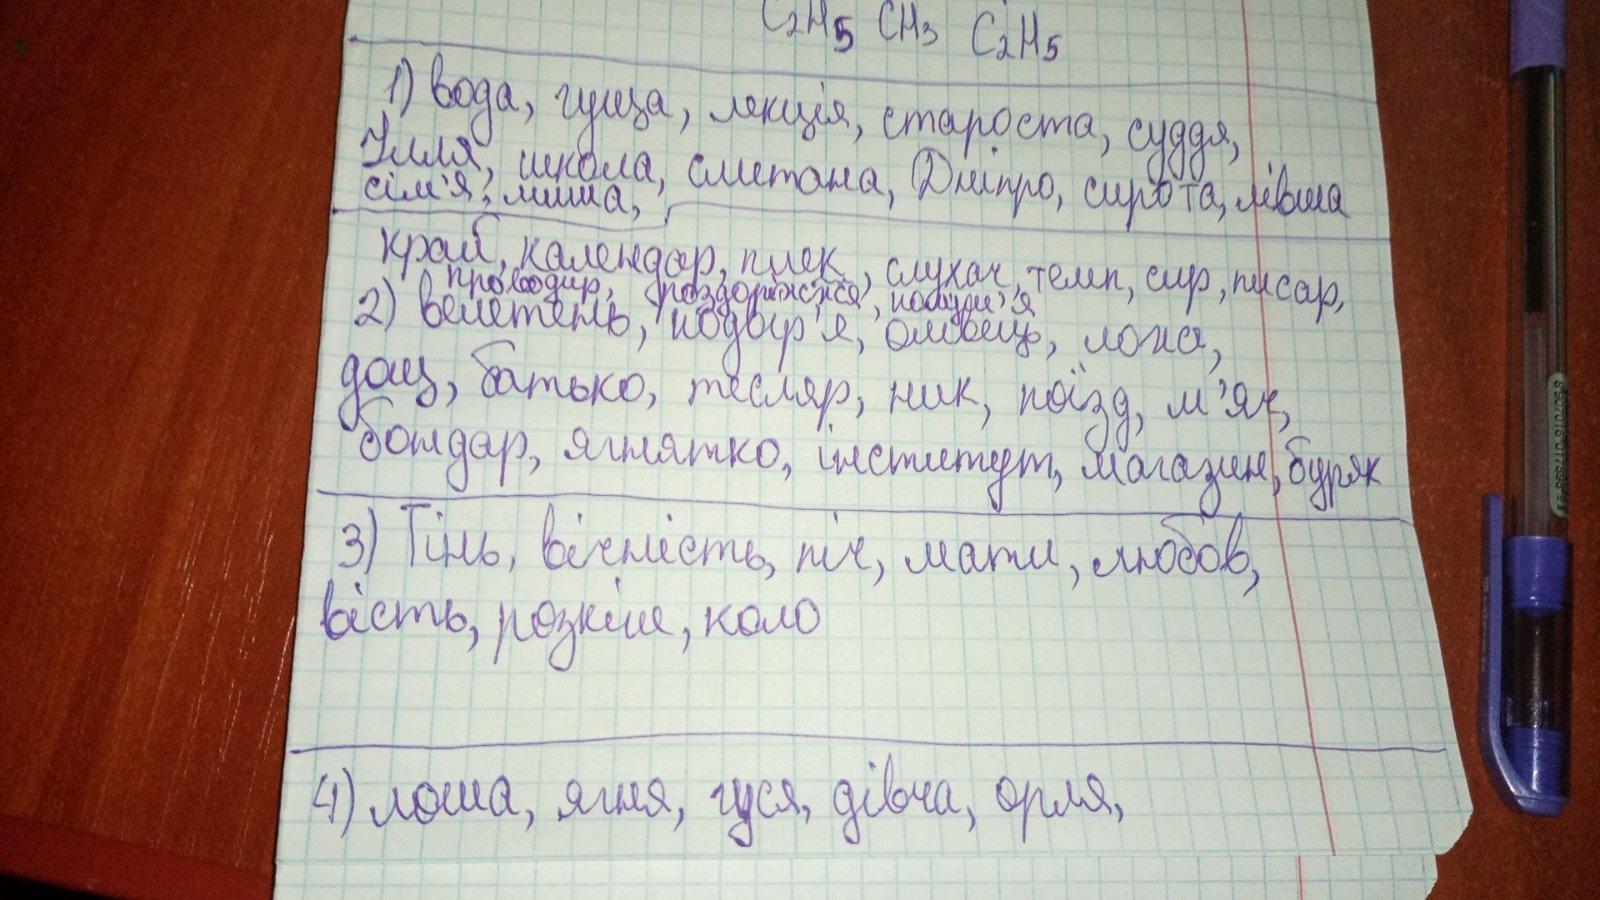 C₂H₅ CH₃ C₂H₅
1) вода, гуща, лекція, староста, суддя,
Ілля, школа, сметана, Дніпро, сирота, лівша
сім'я, миша,
край, календар, слухач, темп, сир, писар,
проводир, роздоріжжя,
2) велетень, подвір'я, олівець,
дощ, батько, тесляр, ник, поїзд, м'яч,
бондар, ягнятко, інститут, магазин, буряк
3) Тінь, вічність, піч, мати, любов,
вість, розкіш, коло
4) лоша, ягня, гуся, дівча, орля,